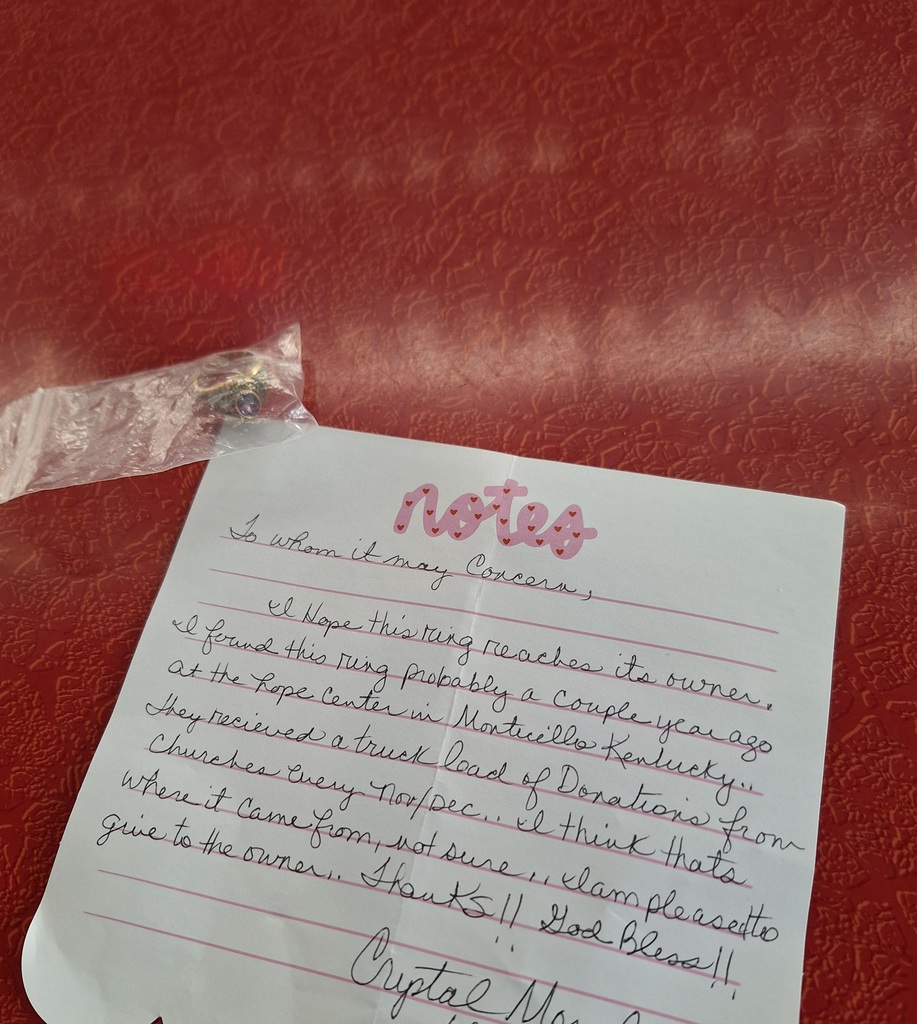 notes
To whom it may Concern,
I Hope this ring reaches its owner.
I found this ring probably a couple year ago
at the hope Center in Monticello Kentucky..
They recieved a truck load of Donations from
Churches every Nov/Dec.. I think thats
where it came from, not sure.. I am pleased to
give to the owner.. Thanks!! God Bless!!
Crystal